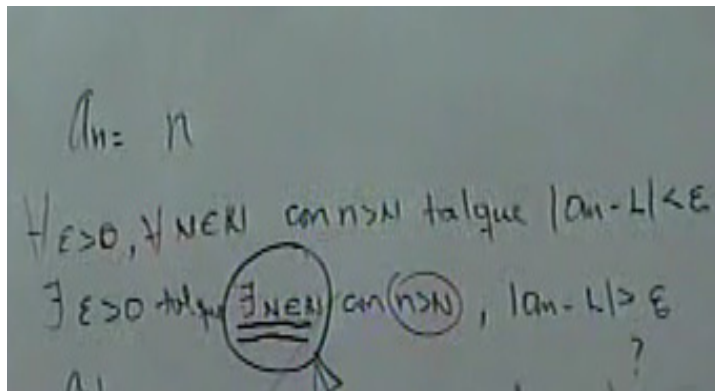 an = n
∀ε>0, ∀ N∈ℕ con n>N tal que |an - L| < ε
∃ ε>0 tal que ∃ N∈ℕ con n>N, |an - L| > ε
?